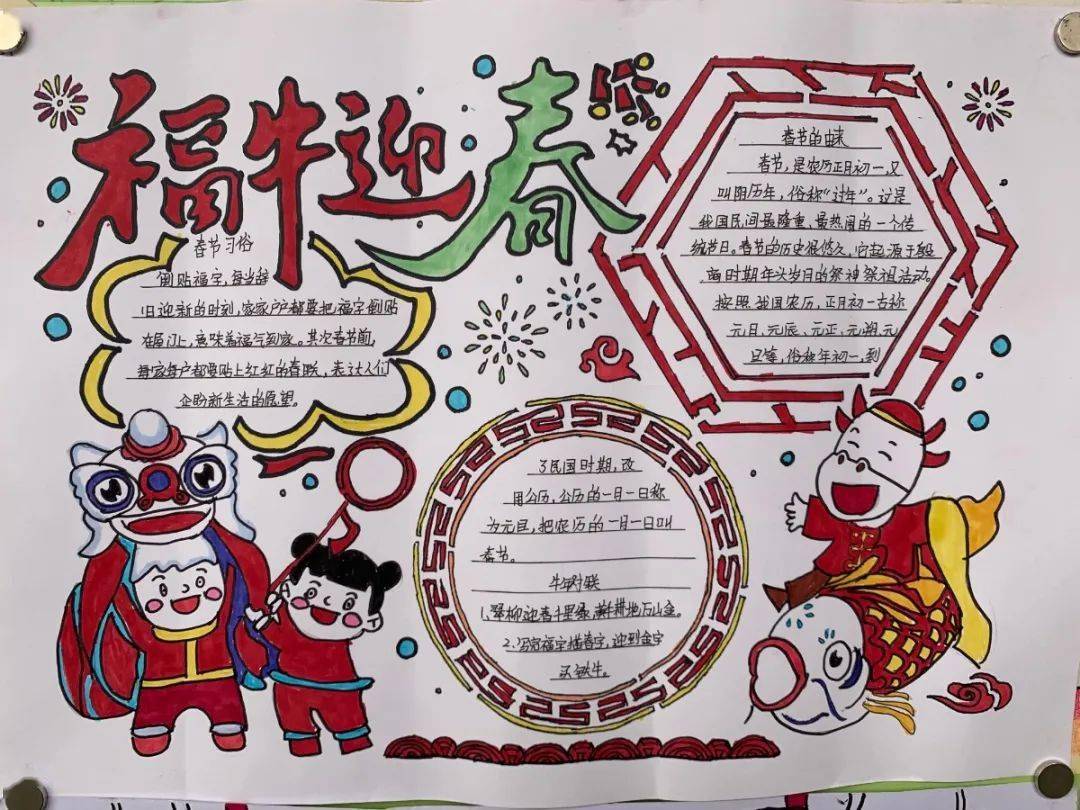 福牛迎春
春节习俗
倒贴福字，每当辞
旧迎新的时刻，家家户户都要把福字倒贴
在门上，意味着福气到家。其次春节前，
每家每户都要贴上红红的春联，表达人们
企盼新生活的愿望。
春节的由来
春节，是农历正月初一，又
叫阴历年，俗称“过年”。这是
我国民间最隆重、最热闹的一个传
统节日。春节的历史很悠久，它起源于殷
商时期年头岁尾的祭神祭祖活动。
按照我国农历，正月初一古称
元日、元辰、元正、元朔、元
旦等，俗称年初一，到
了民国时期，改
用公历，公历的一月一日称
为元旦，把农历的一月一日叫
春节。
牛年对联
1、翠柳迎春千里绿，耕地万山金。
2、福字描春字，迎到金牛
铁牛。